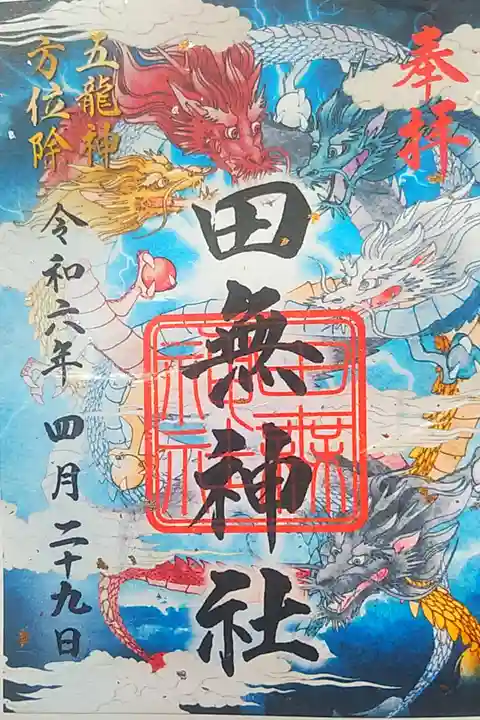 奉拝
田無神社
田無神社
五龍神
方位除
令和六年四月二十九日